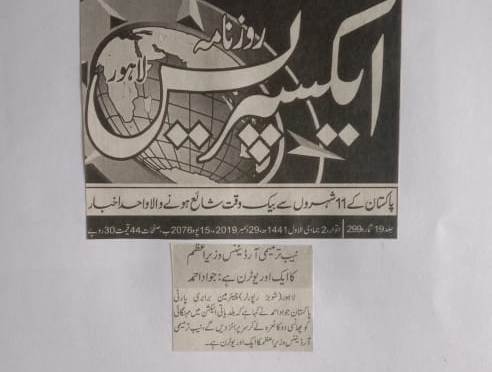 روزنامہ
ایکسپریس
لاہور
پاکستان کے 11 شہروں سے بیک وقت شائع ہونے والا واحد اخبار
جلد 19 شمارہ 299 اتوار، 2 جمادی الاول 1441ھ، 29 دسمبر 2019ء، 15 پوہ 2076ب، صفحات 44 قیمت 30 روپے
نیب ترمیمی آرڈیننس وزیراعظم
کا ایک اور یوٹرن ہے: جواد احمد
لاہور (شوبز رپورٹر) چیئرمین برابری پارٹی
پاکستان جواد احمد نے کہا ہے کہ بلدیاتی الیکشن میں مہنگائی
کو پھانسی دو کا نعرہ لے کر سرپرائز دیں گے، نیب ترمیمی
آرڈیننس وزیراعظم کا ایک اور یوٹرن ہے۔